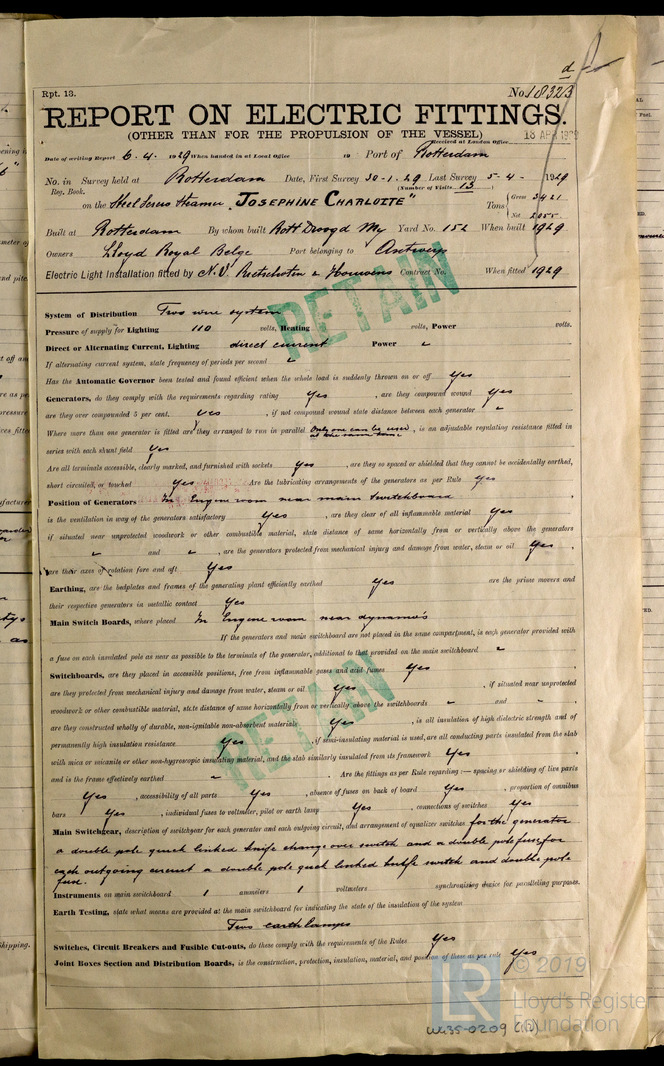 d
Rpt. 13.
No. 18323
REPORT ON ELECTRIC FITTINGS.
(OTHER THAN FOR THE PROPULSION OF THE VESSEL)
Received at London Office 18 APR 1929
Date of writing Report 6.4. 1929 When handed in at Local Office 19 Port of Rotterdam
No. in Survey held at Rotterdam Date, First Survey 30-1-29 Last Survey 5-4- 1929
Reg. Book. (Number of Visits 13)
on the Steel Screw Steamer "JOSEPHINE CHARLOTTE" Tons { Gross 3421
Net 2055
Built at Rotterdam By whom built Rott Droogd My Yard No. 152 When built 1929
Owners Lloyd Royal Belge Port belonging to Antwerp
Electric Light Installation fitted by N.V. Rietschoten & Houwens Contract No. When fitted 1929
RETAIN
System of Distribution Two wire system
Pressure of supply for Lighting 110 volts, Heating volts, Power volts.
Direct or Alternating Current, Lighting direct current Power "
If alternating current, state frequency of periods per second "
Has the Automatic Governor been tested and found efficient when the whole load is suddenly thrown on or off Yes
Generators, do they comply with the requirements regarding rating Yes , are they compound wound Yes
are they over compounded 5 per cent. yes , if not compound wound state distance between each generator "
Where more than one generator is fitted are they arranged to run in parallel Only one can be used at the same time , is an adjustable regulating resistance fitted in
series with each shunt field Yes
Are all terminals accessible, clearly marked, and furnished with sockets Yes , are they so spaced or shielded that they cannot be accidentally earthed,
short circuited, or touched Yes Are the lubricating arrangements of the generators as per Rule Yes
Position of Generators In Engine room near main Switchboard
is the ventilation in way of the generators satisfactory Yes , are they clear of all inflammable material Yes
if situated near unprotected woodwork or other combustible material, state distance of same horizontally from or vertically above the generators
" and " , are the generators protected from mechanical injury and damage from water, steam or oil Yes ,
are their axes of rotation fore and aft Yes
Earthing, are the bedplates and frames of the generating plant efficiently earthed Yes are the prime movers and
their respective generators in metallic contact Yes
Main Switch Boards, where placed In Engine room near dynamo's
If the generators and main switchboard are not placed in the same compartment, is each generator provided with
a fuse on each insulated pole as near as possible to the terminals of the generator, additional to that provided on the main switchboard "
Switchboards, are they placed in accessible positions, free from inflammable gases and acid fumes Yes ,
are they protected from mechanical injury and damage from water, steam or oil Yes , if situated near unprotected
woodwork or other combustible material, state distance of same horizontally from or vertically above the switchboards " and " ,
are they constructed wholly of durable, non-ignitable non-absorbent materials Yes , is all insulation of high dielectric strength and of
permanently high insulation resistance Yes , if semi-insulating material is used, are all conducting parts insulated from the slab
with mica or micanite or other non-hygroscopic insulating material, and the slab similarly insulated from its framework Yes ,
and is the frame effectively earthed " . Are the fittings as per Rule regarding:— spacing or shielding of live parts
Yes , accessibility of all parts Yes , absence of fuses on back of board Yes , proportion of omnibus
bars Yes , individual fuses to voltmeter, pilot or earth lamp Yes , connections of switches Yes
RETAIN
Main Switchgear, description of switchgear for each generator and each outgoing circuit, and arrangement of equalizer switches for the generator
a double pole quick linked knife change over switch and a double pole fuse, for
each outgoing circuit a double pole quick linked knife switch and double pole
fuse.
Instruments on main switchboard 1 ammeters 1 voltmeters synchronising device for paralleling purposes.
Earth Testing, state what means are provided at the main switchboard for indicating the state of the insulation of the system
Two earth lamps
Switches, Circuit Breakers and Fusible Cut-outs, do these comply with the requirements of the Rules Yes
Joint Boxes Section and Distribution Boards, is the construction, protection, insulation, material, and position of these as per rule Yes
LR © 2019
Lloyd's Register
Foundation
W635-0209 (1/3)